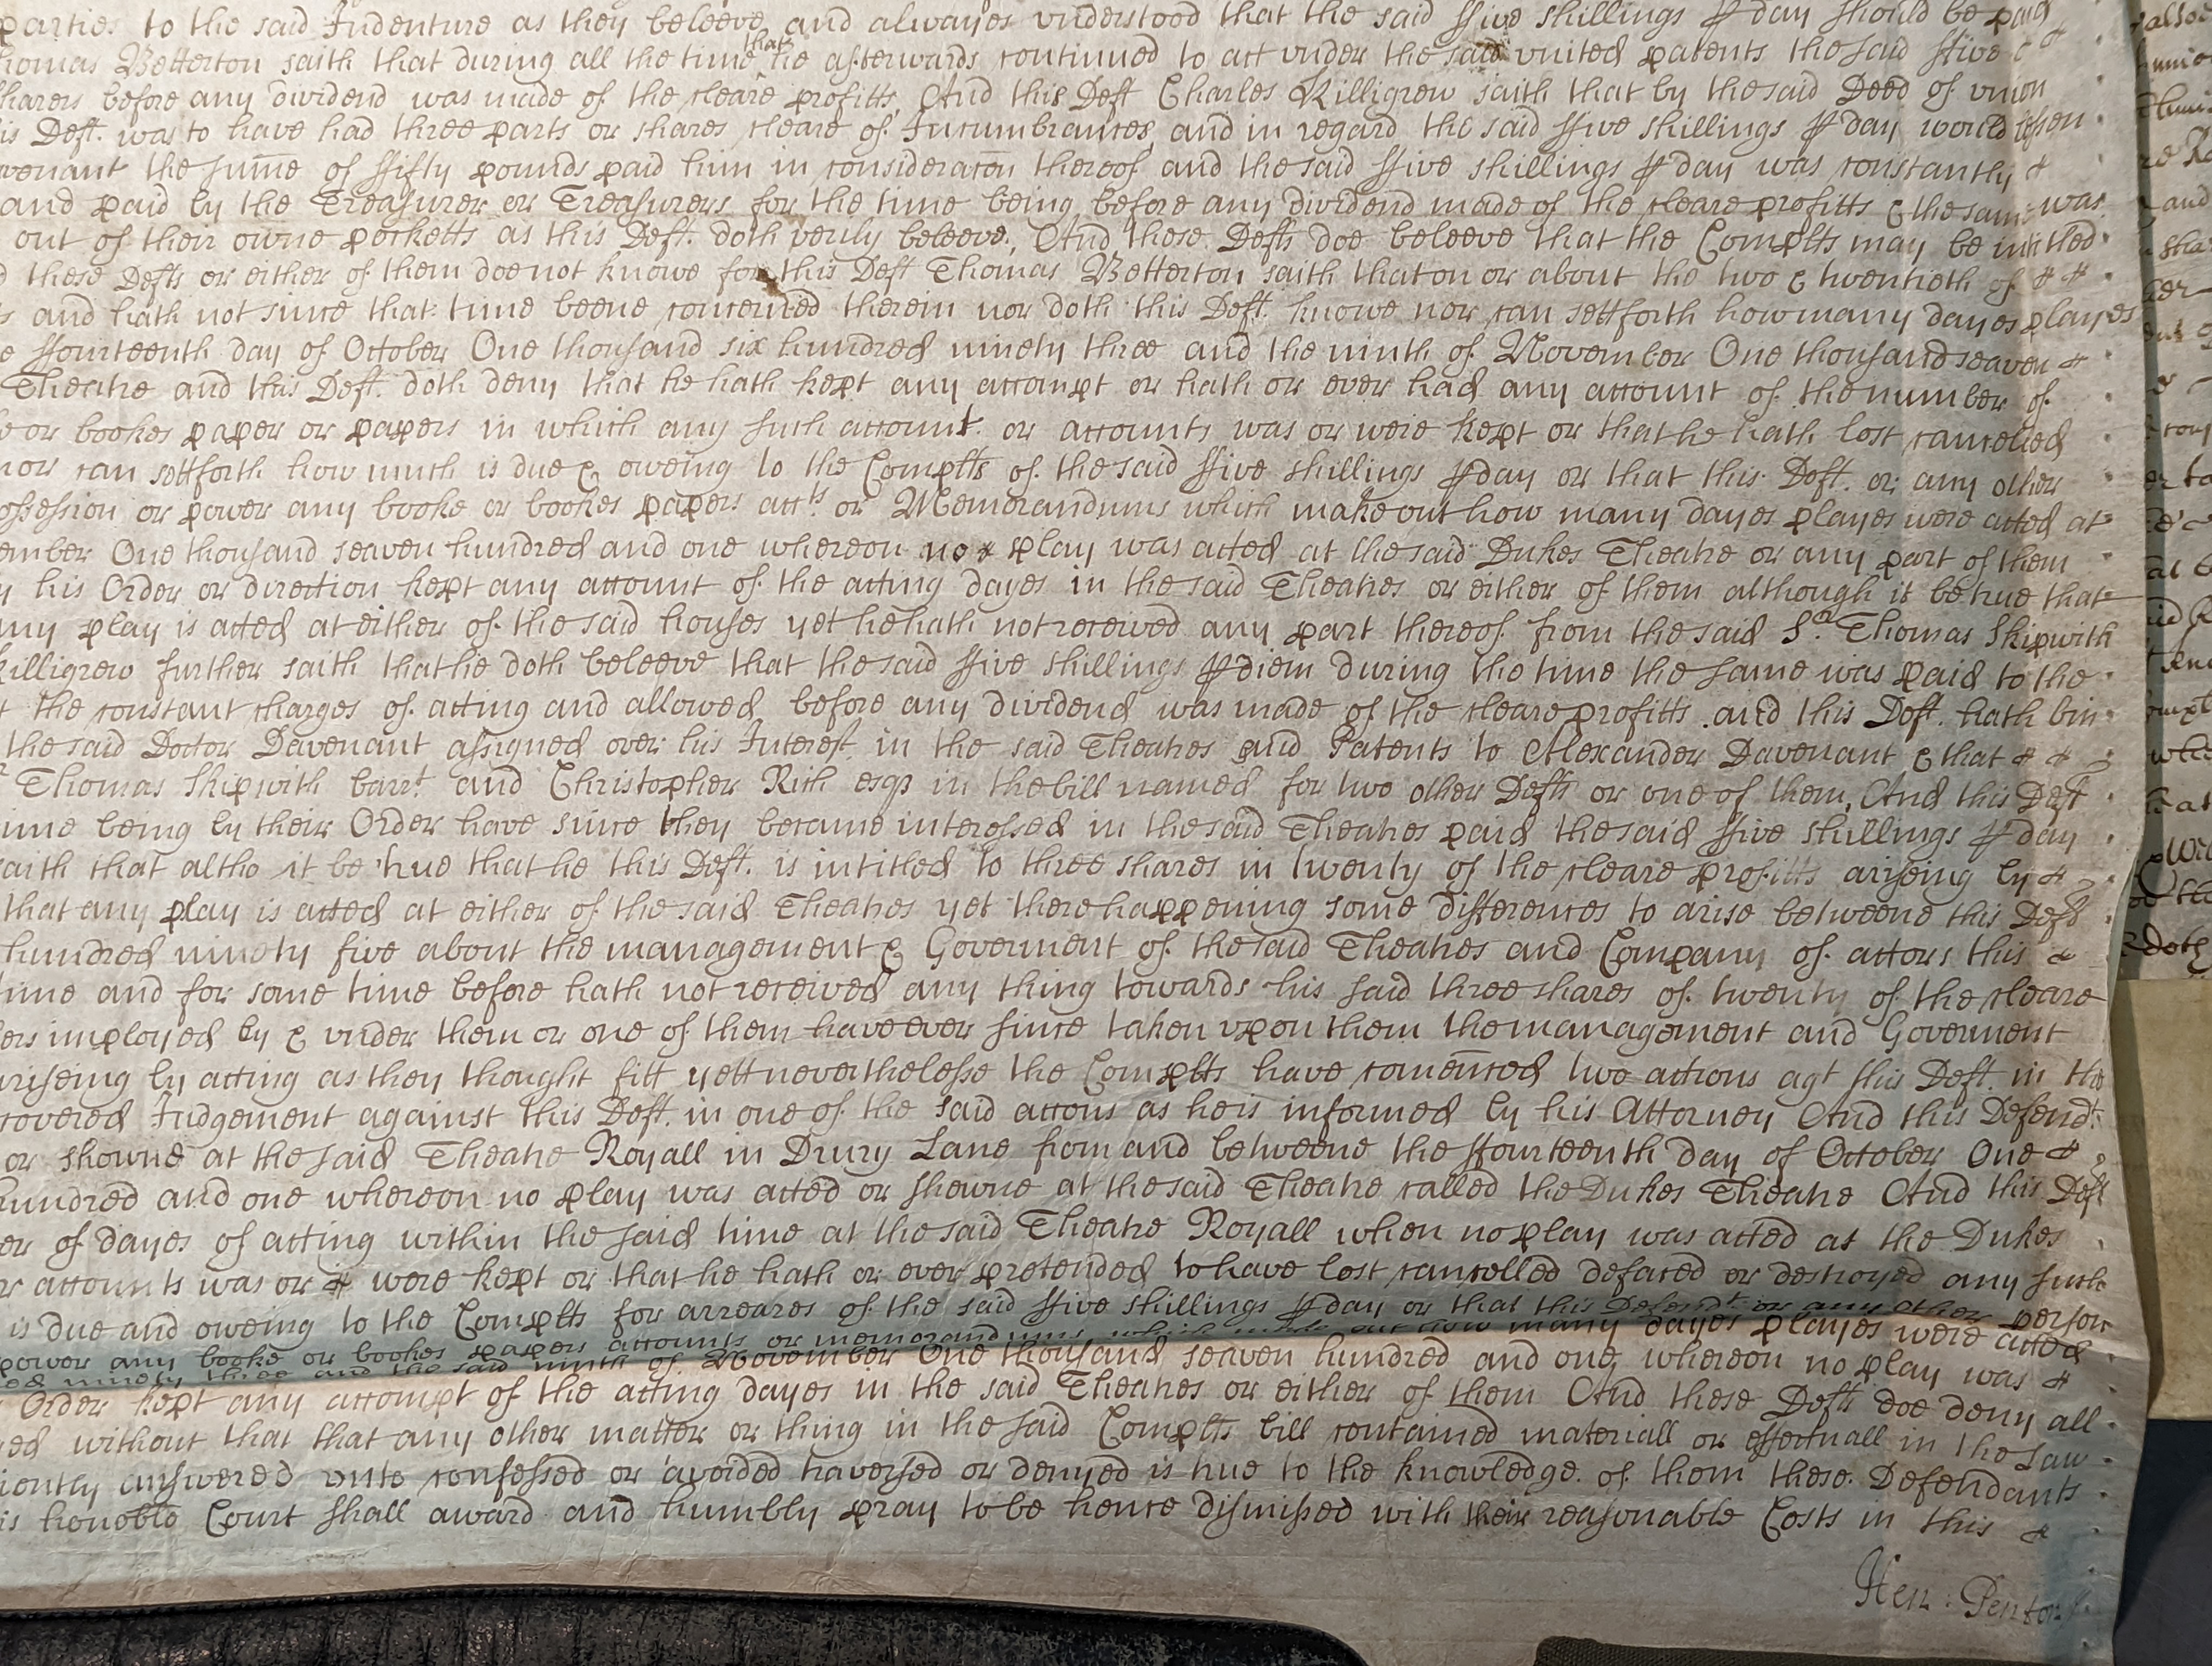 parties to the said Indenture as they beleeve and alwayes understood that the said ffive shillings ⅌ day should be paid
homas Betterton saith that during all the time that he afterwards continued to act under the said united patents the said ffive
sharers before any dividend was made of the cleare profitts, And this Deft Charles Killigrew saith that by the said Deed of union
is Deft. was to have had three parts or shares cleare of Incumbrances, and in regard the said ffive shillings ⅌ day would lessen
venant the sum̄e of ffifty pounds paid him in consideracōn thereof and the said ffive shillings ⅌ day was constantly
and paid by the Treasurer or Treasurers for the time being before any dividend made of the cleare profitts & the same was
out of their owne pocketts as this Deft. doth verily beleeve, And these Defts doe beleeve that the Complts may be intitled
these Defts or either of them doe not knowe for this Deft Thomas Betterton saith that on or about the two & twentieth of
s and hath not since that time beene concerned therein nor doth this Deft. knowe nor can sett forth how many dayes playes
e ffourteenth day of October One thousand six hundred ninety three and the ninth of November One thousand seaven
Theatre and this Deft. doth deny that he hath kept any accompt or hath or ever had any account of the number of
or bookes paper or papers in which any such account or accounts was or were kept or that he hath lost cancelled
nor can sett forth how much is due & oweing to the Complts of the said ffive shillings ⅌ day or that this Deft. or any other
ossession or power any booke or bookes papers accts. or Memorandums which make out how many dayes playes were acted at
ember One thousand seaven hundred and one whereon no play was acted at the said Dukes Theatre or any part of them
his Order or direction kept any account of the acting dayes in the said Theatres or either of them although it be true that
any play is acted at either of the said houses yet he hath not received any part thereof from the said Sr. Thomas Skipwith
killigrew further saith that he doth beleeve that the said ffive shillings ⅌ diem during the time the same was paid to the
the constant charges of acting and allowed before any dividend was made of the cleare profitts and this Deft. hath bin
the said Doctor Davenant assigned over his Interest in the said Theatres and Patents to Alexander Davenant & that
Thomas Skipwith barrt. and Christopher Rich esqs in the bill named for two other Defts or one of them, And this Deft
ime being by their Order have since they became interessed in the said Theatres paid the said ffive shillings ⅌ day
saith that altho it be true that he this Deft. is intitled to three shares in twenty of the cleare profitts ariseing by
that any play is acted at either of the said Theatres yet there happening some differences to arise betweene this Deft
hundred ninety five about the management & Goverment of the said Theatres and Company of actors this
time and for some time before hath not received any thing towards his said three shares of twenty of the cleare
ers imployed by & under them or one of them have ever since taken upon them the management and Goverment
ariseing by acting as they thought fitt yett neverthelesse the Complts have com̄enced two actions agt this Deft. in the
covered Judgement against this Deft. in one of the said accons as he is informed by his Attorney And this Defendt.
or showne at the said Theatre Royall in Drury Lane from and betweene the ffourteenth day of October One
hundred and one whereon no play was acted or shewne at the said Theatre called the Dukes Theatre And this Deft
er of dayes of acting within the said time at the said Theatre Royall when no play was acted at the Dukes
r accounts was or were kept or that he hath or ever pretended to have lost cancelled defaced or destroyed any such
is due and oweing to the Complts for arreares of the said ffive shillings ⅌ day or that this Defendt or any other person
power any booke or bookes papers accounts or memorandums which make out how many dayes playes were acted
ed ninety three and the said ninth of November One thousand seaven hundred and one whereon no play was
Order kept any accompt of the acting dayes in the said Theatres or either of them And these Defts doe deny all
ed without that that any other matter or thing in the said Complts bill contained materiall or effectuall in the Law
iently answered unto confessed or avoided traversed or denyed is true to the knowledge of them these Defendants
is honoble Court shall award and humbly pray to be hence dismissed with their reasonable Costs in this
Hen: Penton